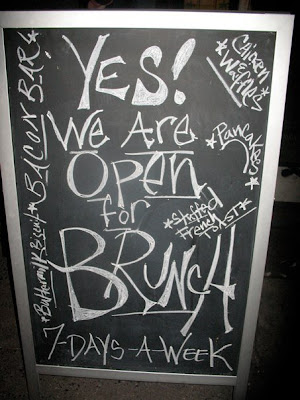 YES!
WE ARE
OPEN
for
BRUNCH
7-DAYS-A-WEEK
*Buttermilk Biscuit*
BACON BAR!
*Chicken
&
Waffles*
*Pancakes*
*Stuffed
French
TOAST*